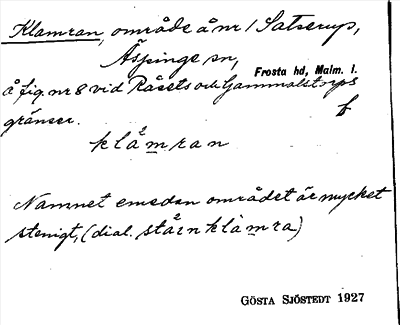 Klamran, område å nr 1 Satserup,
Äspinge sn,
Frosta hd, Malm. l.
å fig. nr 8 vid Råsets och Gammalstorps
gränser.
f
klåmran
Namnet emedan området är mycket
stenigt, (dial. stå̊rn klåmra)
GÖSTA SJÖSTEDT 1927